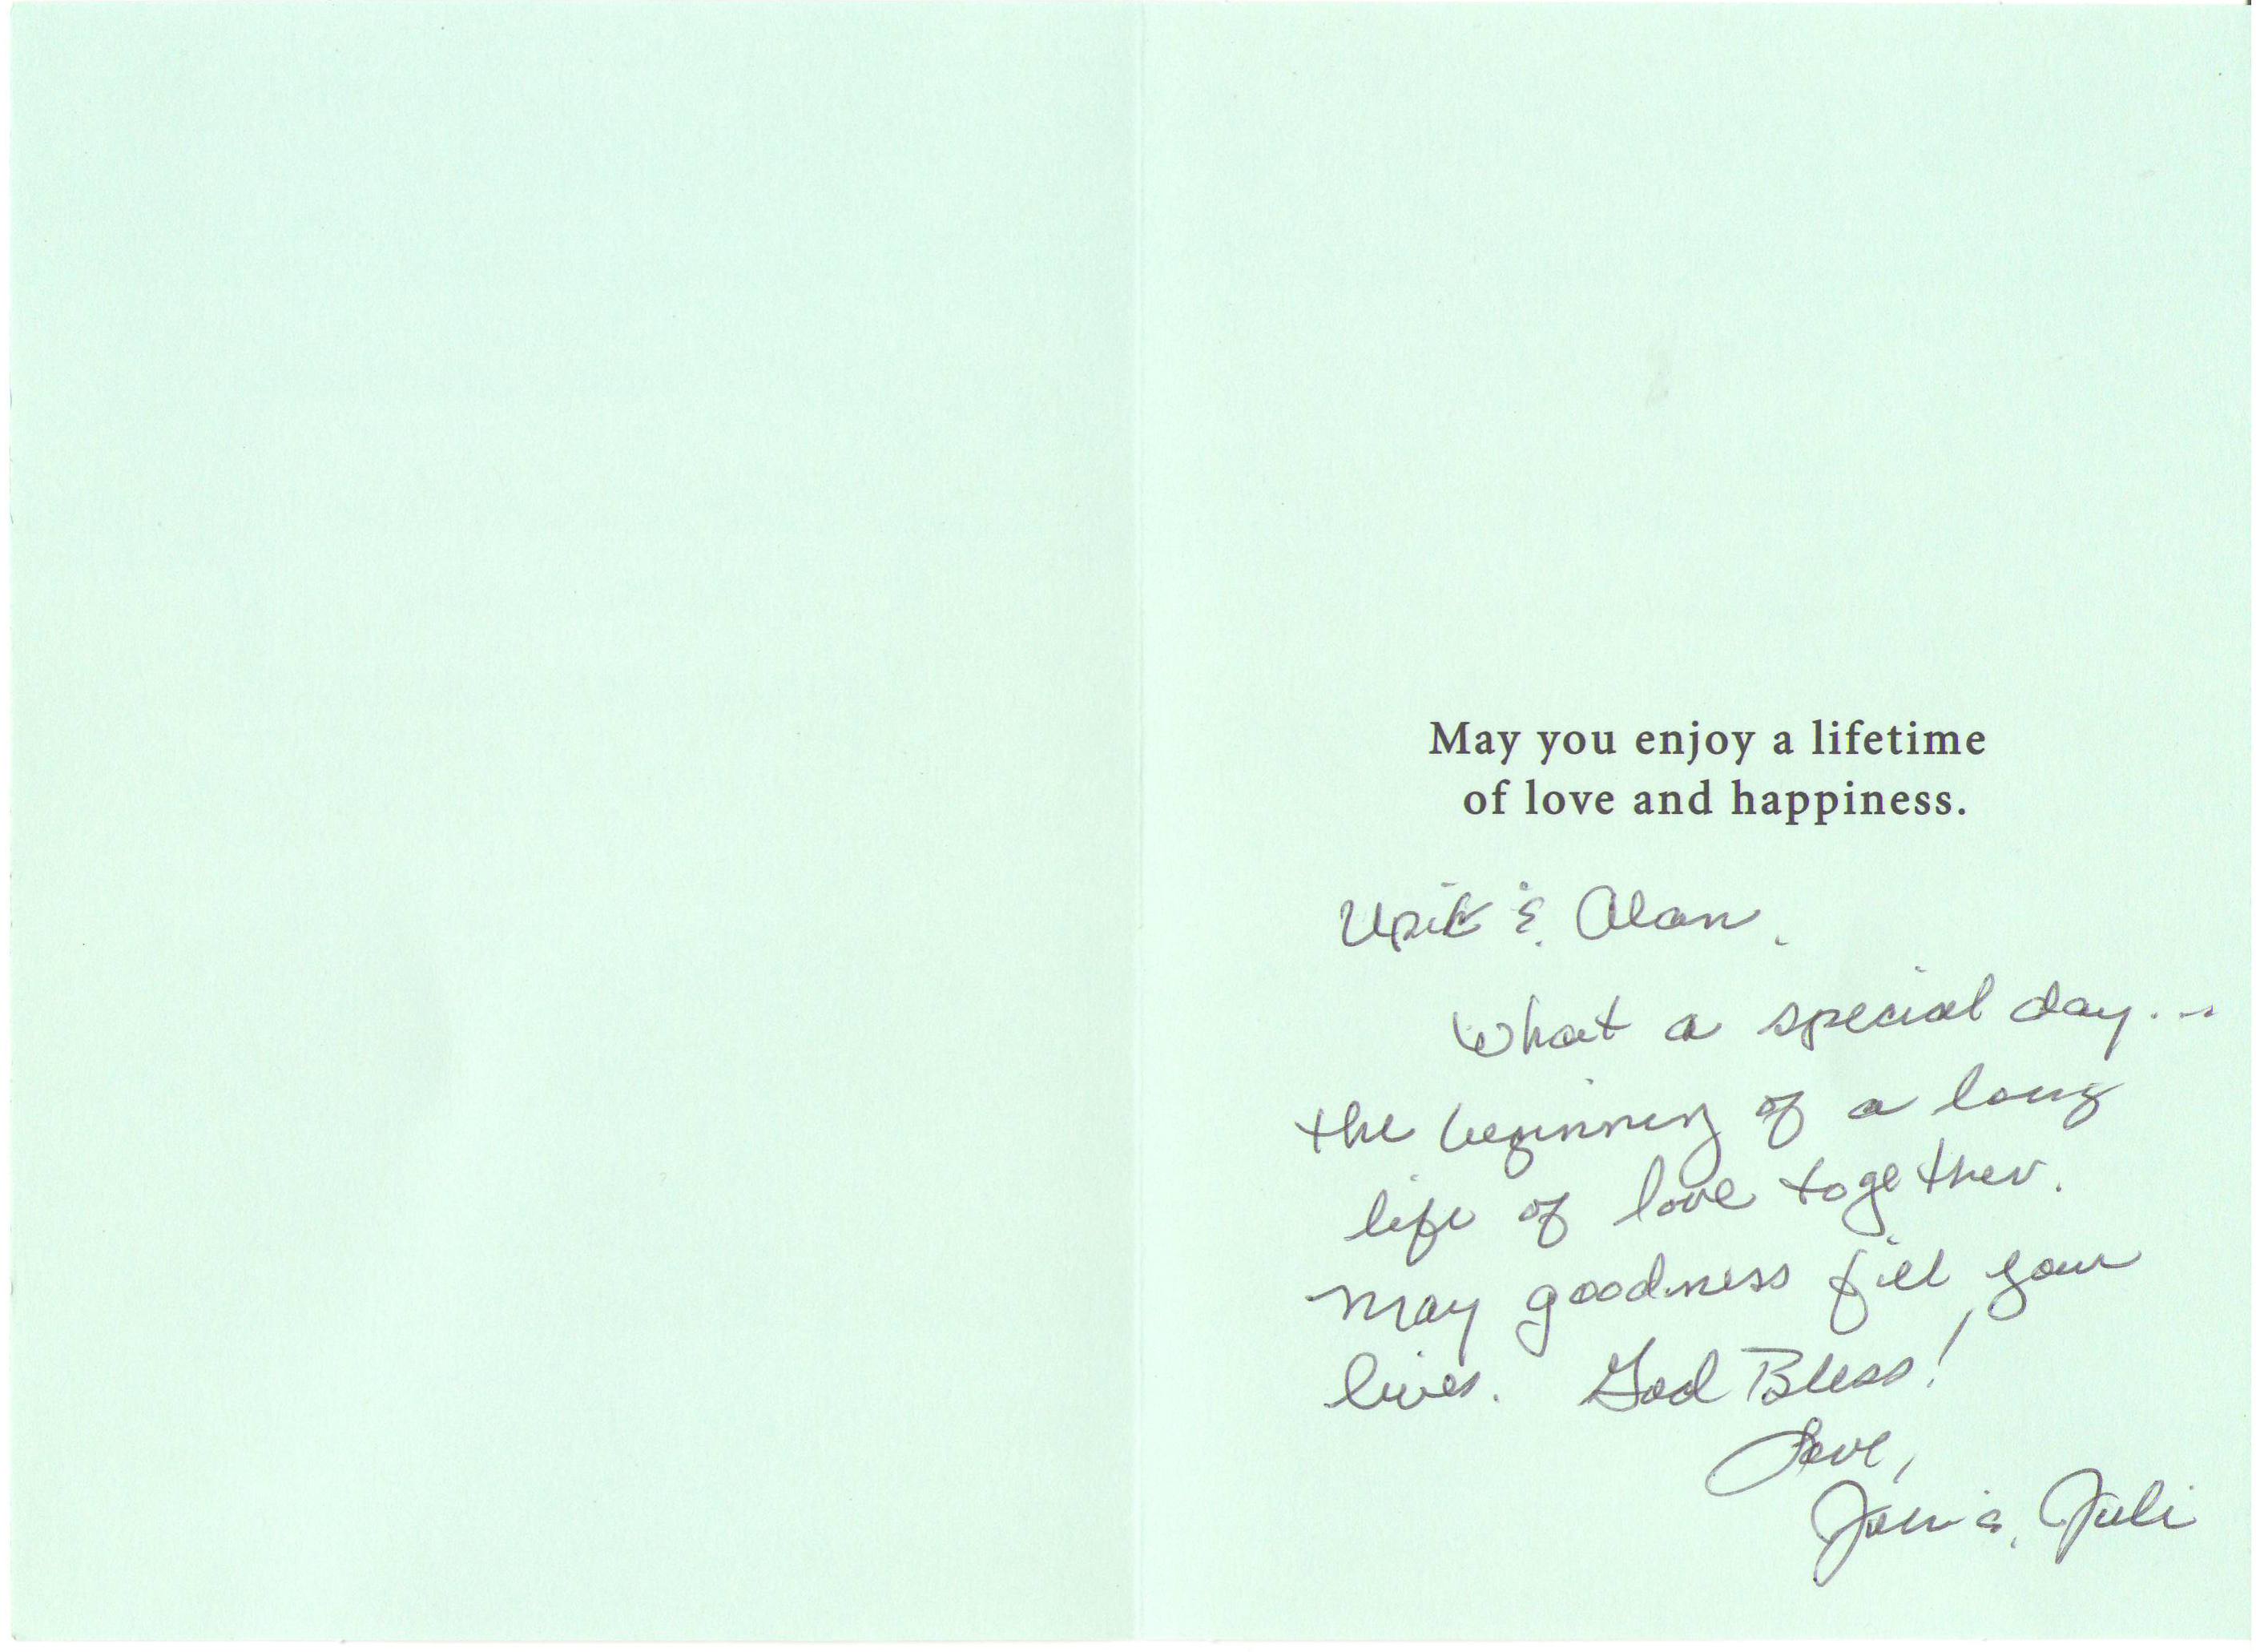 May you enjoy a lifetime
of love and happiness.
& Alan,
What a special day...
the beginning of a long
life of love together.
May goodness fill your
lives. God Bless!
Love,
& Juli